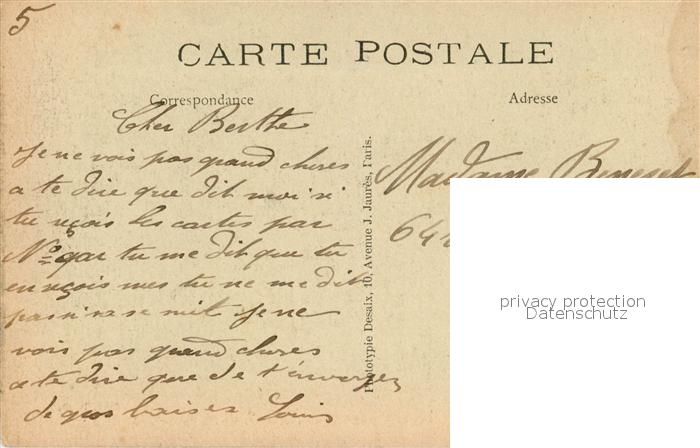 5
CARTE POSTALE
Correspondance
Adresse
Cher Berthe
Je ne vois pas grand choses
a te dire que dit moi si
tu reçois les cartes par
No qar tu me dit que tu
en reçois mes tu ne me dit
pas si ra se mit Je ne
vois pas grand choses
a te dire que de t'envoyer
de gros baiser Louis
Phototypie Desaix, 10, Avenue J. Jaurès, Paris.
Madame
64
privacy protection
Datenschutz